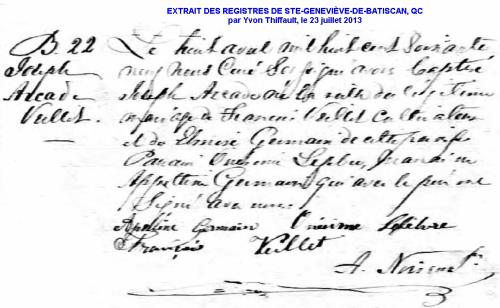 EXTRAIT DES REGISTRES DE STE-GENEVIÈVE-DE-BATISCAN, QC
par Yvon Thiffault, le 23 juillet 2013
B 22
Joseph
Arcade
Veillet.
Le huit avril mil huit cent soixante
neuf nous Curé Soussigné avons baptisé
Joseph Arcade né la veille du légitime
mariage de François Veillet Cultivateur
et de Germain de cette paroisse
Parrain Onesime Lefebvre, marraine
Germain qui avec le père ont
Signé avec nous.
Germain Onésime Lefebvre
François Veillet